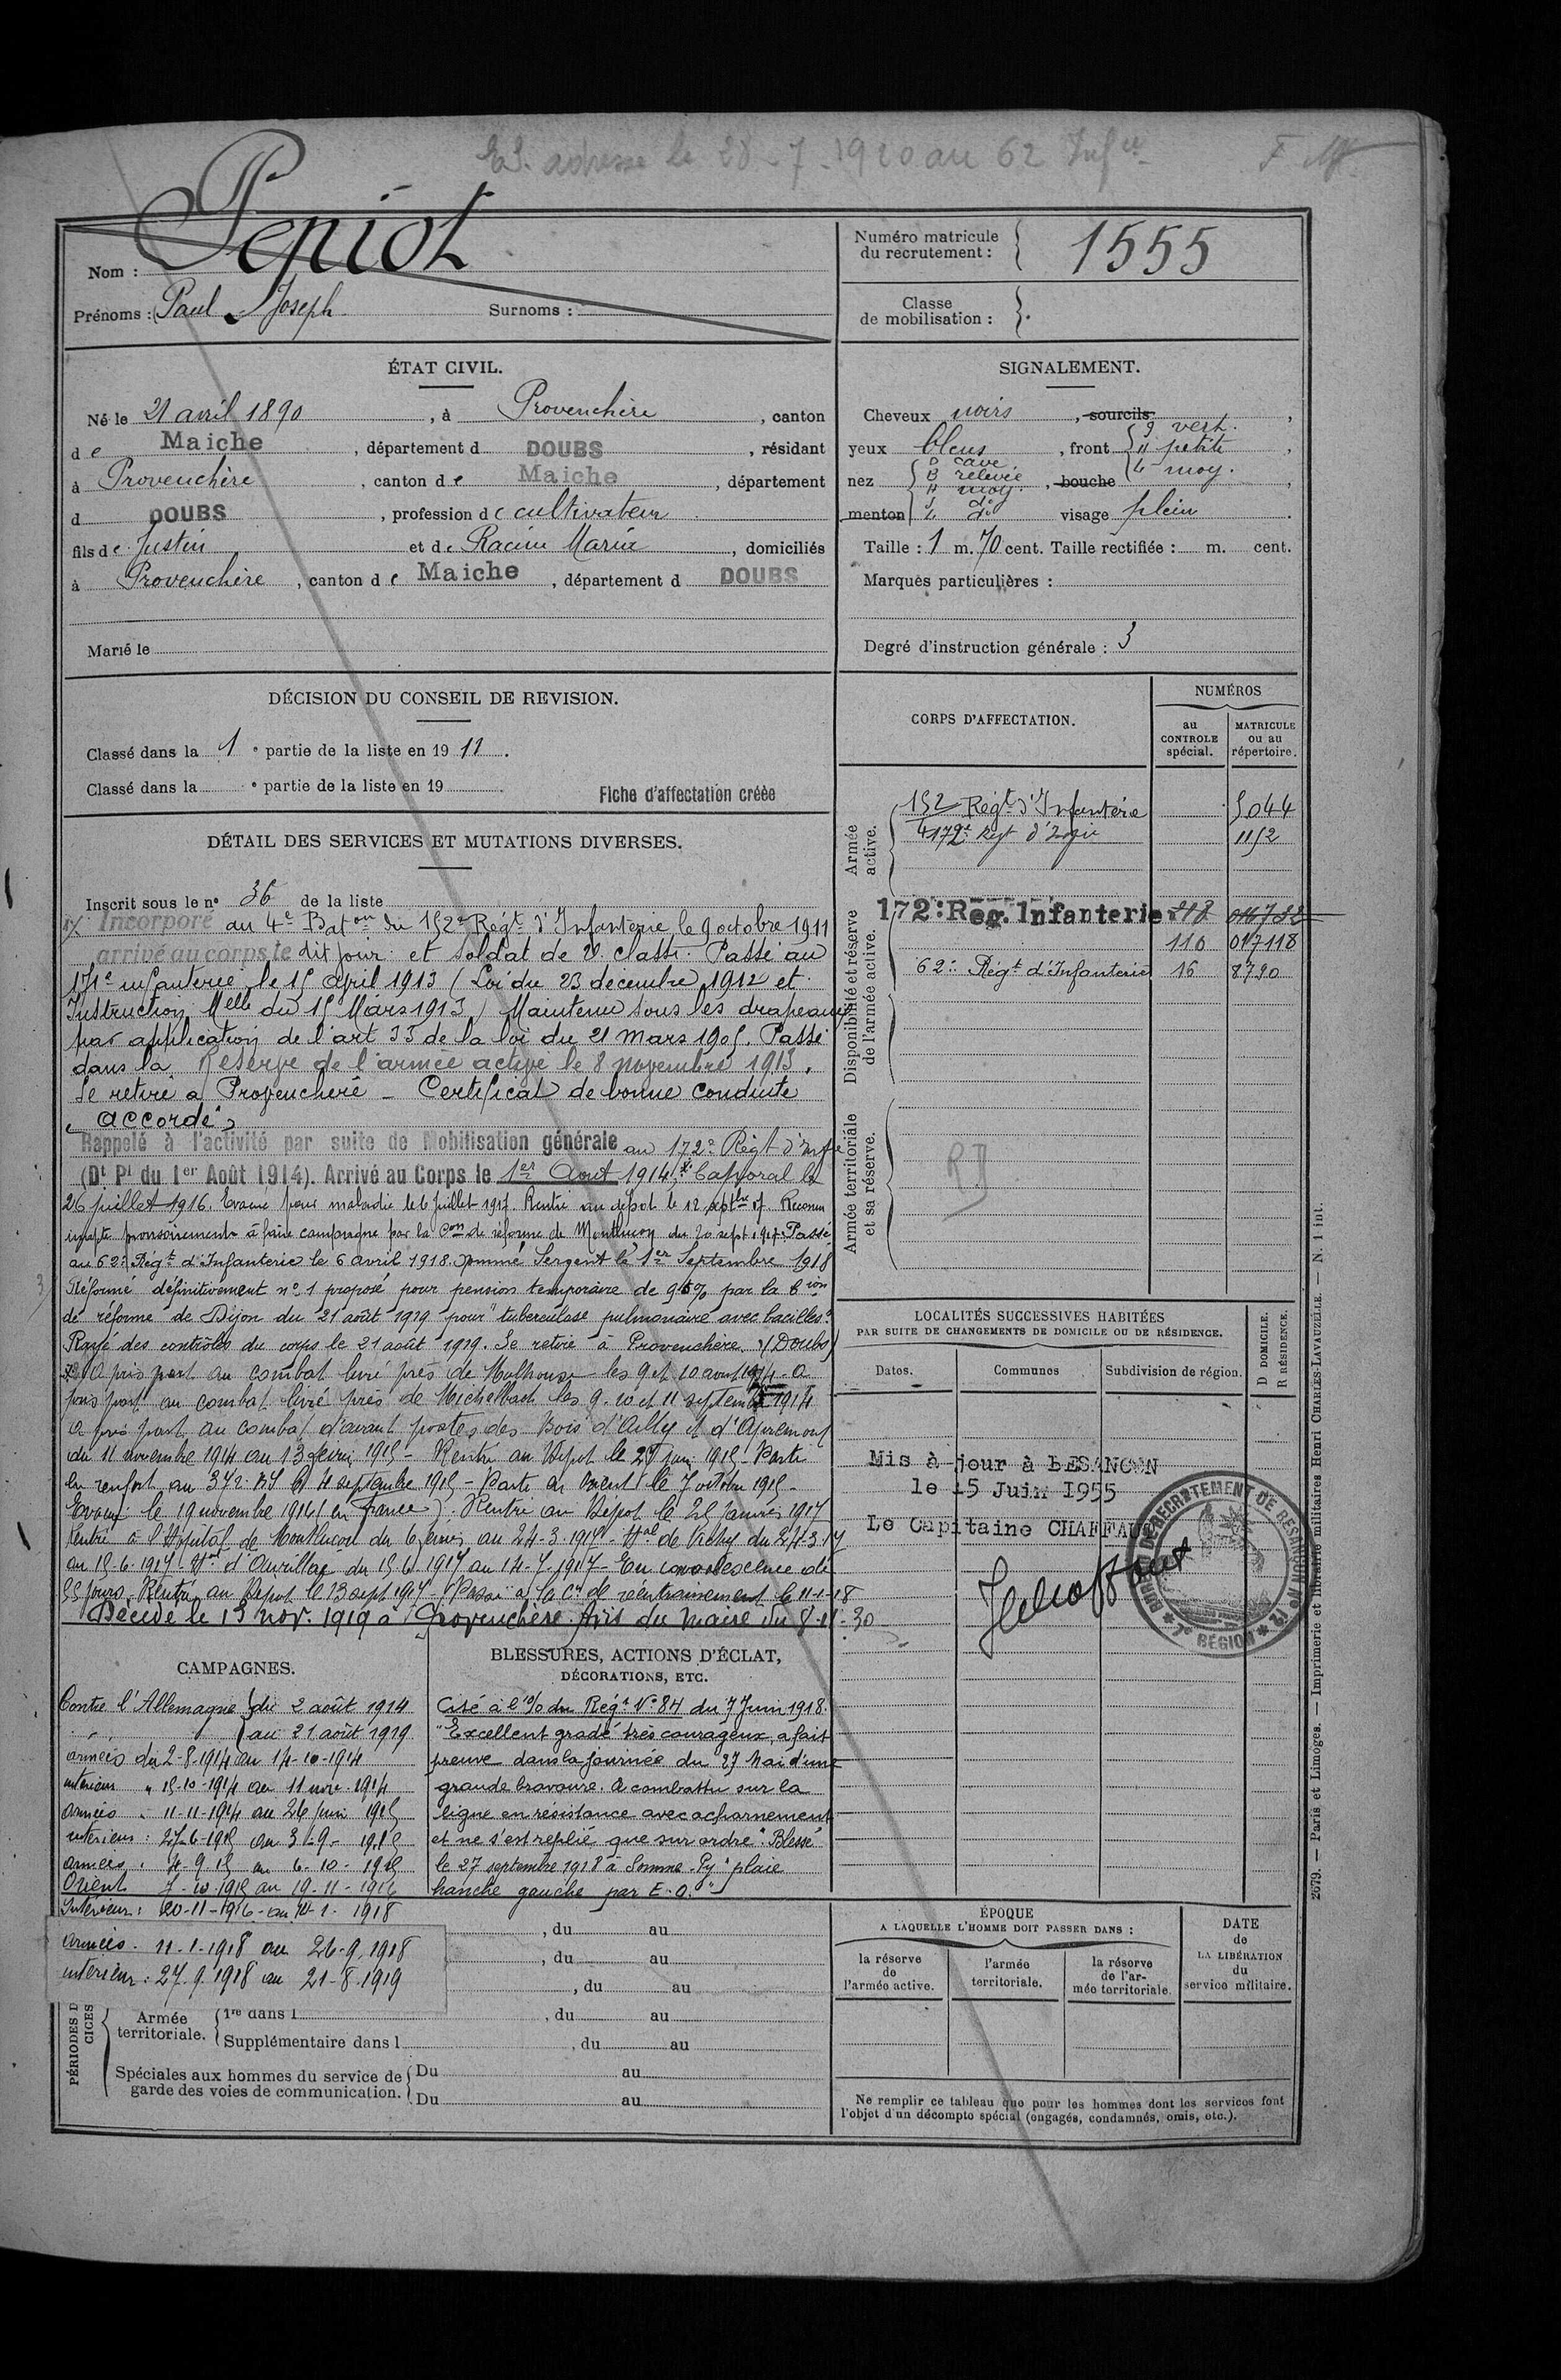 ES. adressé le 28-7-1920 au 62 Inf ie
Nom : Pepiot
Prénoms : Paul Joseph Surnoms :
Numéro matricule du recrutement : 1555
Classe de mobilisation :
ÉTAT CIVIL.
Né le 21 avril 1890, à Provenchère, canton
de Maiche, département d DOUBS, résidant
à Provenchère, canton de Maiche, département
d DOUBS, profession de cultivateur
fils de Justin et de Racine Maria, domiciliés
à Provenchère, canton de Maiche, département d DOUBS
Marié le
SIGNALEMENT.
Cheveux noirs, sourcils
yeux bleus, front vert. petite moy.
nez D cave B relevée H moy. S d° L d°, bouche
menton visage plein
Taille : 1 m. 70 cent. Taille rectifiée : m. cent.
Marques particulières :
Degré d'instruction générale : 3
DÉCISION DU CONSEIL DE REVISION.
Classé dans la 1e partie de la liste en 1911.
Classé dans la e partie de la liste en 19
Fiche d'affectation créée
DÉTAIL DES SERVICES ET MUTATIONS DIVERSES.
Inscrit sous le n° 36 de la liste
Incorporé au 4e Baton du 152e Régt d'Infanterie le 9 octobre 1911
arrivé au corps le dit jour et soldat de 2e classe. Passé au
171e infanterie le 15 april 1913 (Loi du 23 décembre 1912 et
Instruction Melle du 15 Mars 1913) Maintenu sous les drapeaux
par application de l'art 33 de la loi du 21 mars 1905. Passé
dans la Réserve de l'armée active le 8 novembre 1913.
Se retire à Provenchère - Certificat de bonne conduite
"accordé"
Rappelé à l'activité par suite de Mobilisation générale au 172e Régt d'Infie
(Dt Pl du 1er Août 1914). Arrivé au Corps le 1er Aout 1914. Caporal le
26 juillet 1916. Evacué pour maladie le 6 Juillet 1917. Rentré au dépot le 12 septbre 17. Reconnu
inapte provisoirement à faire campagne par la Con de réforme de Montluçon du 20 sept 1917. Passé
au 62e Régt d'Infanterie le 6 avril 1918. Nommé Sergent le 1er Septembre 1918
Réformé définitivement n° 1 proposé pour pension temporaire de 95% par la Cion
de réforme de Dijon du 21 août 1919 pour "tuberculose pulmonaire avec bacilles"
Rayé des contrôles du corps le 21 août 1919. Se retire à Provenchère (Doubs)
A pris part au combat livré près de Mulhouse les 9 et 10 aout 1914 - a
pris part au combat livré près de Michelbach les 9. 10 et 11 septembre 1914
a pris part au combat d'avant postes des Bois d'Ailly et d'Apremont
du 11 novembre 1914 au 13 fevrier 1915 - Rentré au Dépot le 27 juin 1915 - Parti
en renfort au 372e RI le 4 septembre 1915 - Parti en Orient le 7 octobre 1915 -
Evacué le 19 novembre 1916 (en France). Rentré au Dépot le 25 Janvier 1917
Rentré à l'Hôpital de Montluçon du 6 au 24-3-1917 - Hal de Vichy du 24-3-17
au 15-6-1917 - Hal d'Aurillac du 15-6 1917 au 14-7-1917 - En convalescence de
jours. Rentré au Dépot le 13 sept 1917 - Passé à la Cie de réentrainement le 11-1-18
Décédé le 13 nov. 1919 à Provenchère. Avis du Maire du 8-11-30
CORPS D'AFFECTATION.
NUMÉROS
au CONTROLE spécial.
MATRICULE ou au répertoire.
Armée active.
152 Régt d'Infanterie 5044
172e Regt d'Infie 1152
Disponibilité et réserve de l'armée active.
172e Rég. Infanterie 218 014782
110 017118
62e Régt d'Infanterie 16 8720
Armée territoriale et sa réserve.
RD
LOCALITÉS SUCCESSIVES HABITÉES
PAR SUITE DE CHANGEMENTS DE DOMICILE OU DE RÉSIDENCE.
Dates. Communes Subdivision de région.
D DOMICILE.
R RÉSIDENCE.
Mis à jour à BESANCON
le 15 Juin 1955
Le Capitaine CHAFFAUT
BUREAU DE RECRUTEMENT DE BESANÇON
7e RÉGION
CAMPAGNES.
Contre l'Allemagne du 2 août 1914
au 21 août 1919
armées du 2-8-1914 au 14-10-1914
intérieur " 15-10-1914 au 11 nov-1914
armées " 11-11-1914 au 26 juin 1915
interieur : 27-6-1915 au 3-9-1915
armées : 4-9-15 au 6-10-1915
Orient 7-10-1915 au 19-11-1916
Intérieur : 20-11-1916 au 10-1-1918
armées. 11-1-1918 au 26-9-1918
interieur : 27.9.1918 au 21-8-1919
BLESSURES, ACTIONS D'ÉCLAT,
DÉCORATIONS, ETC.
Cité à l'O/ du Régt N° 84 du 7 Juin 1918.
"Excellent gradé très courageux, a fait
preuve dans la journée du 27 Mai d'une
grande bravoure. A combattu sur la
ligne en résistance avec acharnement
et ne s'est replié que sur ordre". Blessé
le 27 septembre 1918 à Somme-Py "plaie
hanche gauche par E.O."
, du au
, du au
, du au
PÉRIODES D
CICES
Armée territoriale. 1re dans l , du au
Supplémentaire dans l , du au
Spéciales aux hommes du service de garde des voies de communication. Du au
Du au
ÉPOQUE
A LAQUELLE L'HOMME DOIT PASSER DANS :
la réserve de l'armée active.
l'armée territoriale.
la réserve de l'armée territoriale.
DATE de LA LIBÉRATION du service militaire.
Ne remplir ce tableau que pour les hommes dont les services font
l'objet d'un décompte spécial (engagés, condamnés, omis, etc.).
2679. — Paris et Limoges. — Imprimerie et librairie militaires Henri CHARLES-LAVAUZELLE. — N. 1 int.